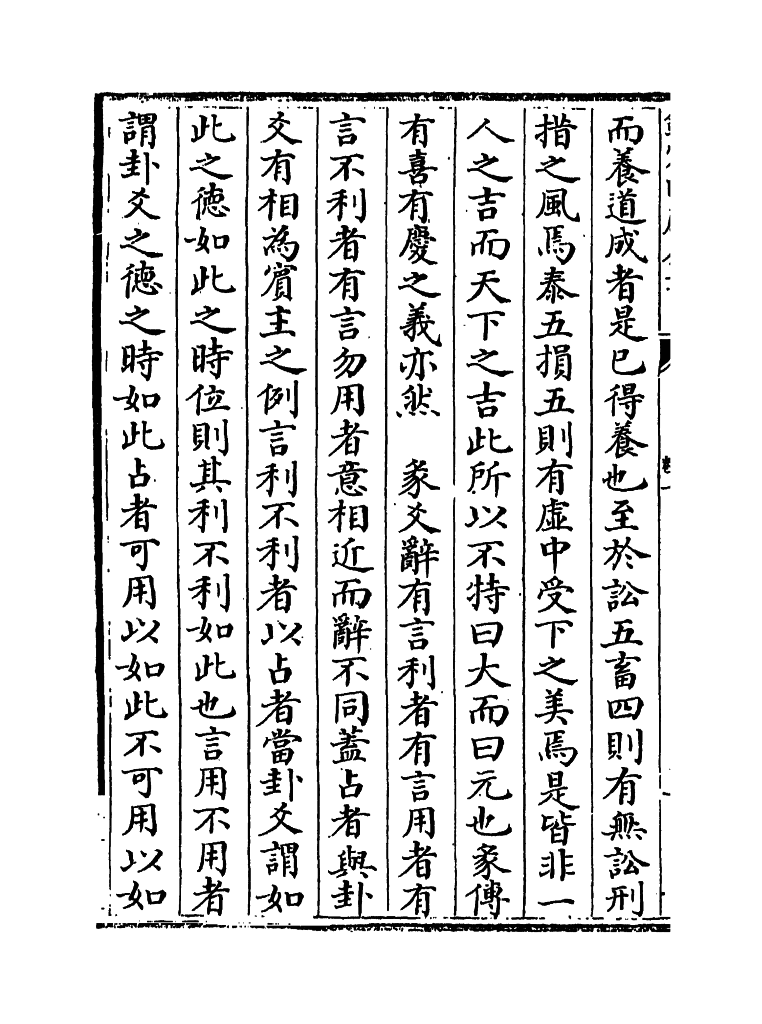 而養道成者是已得養也至於訟五畜四則有無訟刑
措之風焉泰五損五則有虛中受下之美焉是皆非一
人之吉而天下之吉此所以不特曰大而曰元也彖傳
有喜有慶之義亦然　彖爻辭有言利者有言用者有
言不利者有言勿用者意相近而辭不同蓋占者與卦
爻有相為賓主之例言利不利者以占者當卦爻謂如
此之德如此之時位則其利不利如此也言用不用者
謂卦爻之德之時如此占者可用以如此不可用以如